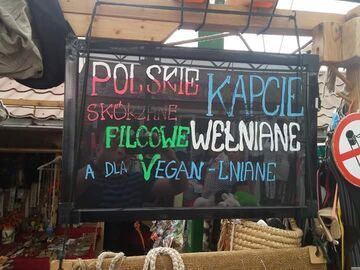 POLSKIE KAPCIE
SKÓRZANE
FILCOWE WEŁNIANE
A DLA VEGAN-LNIANE